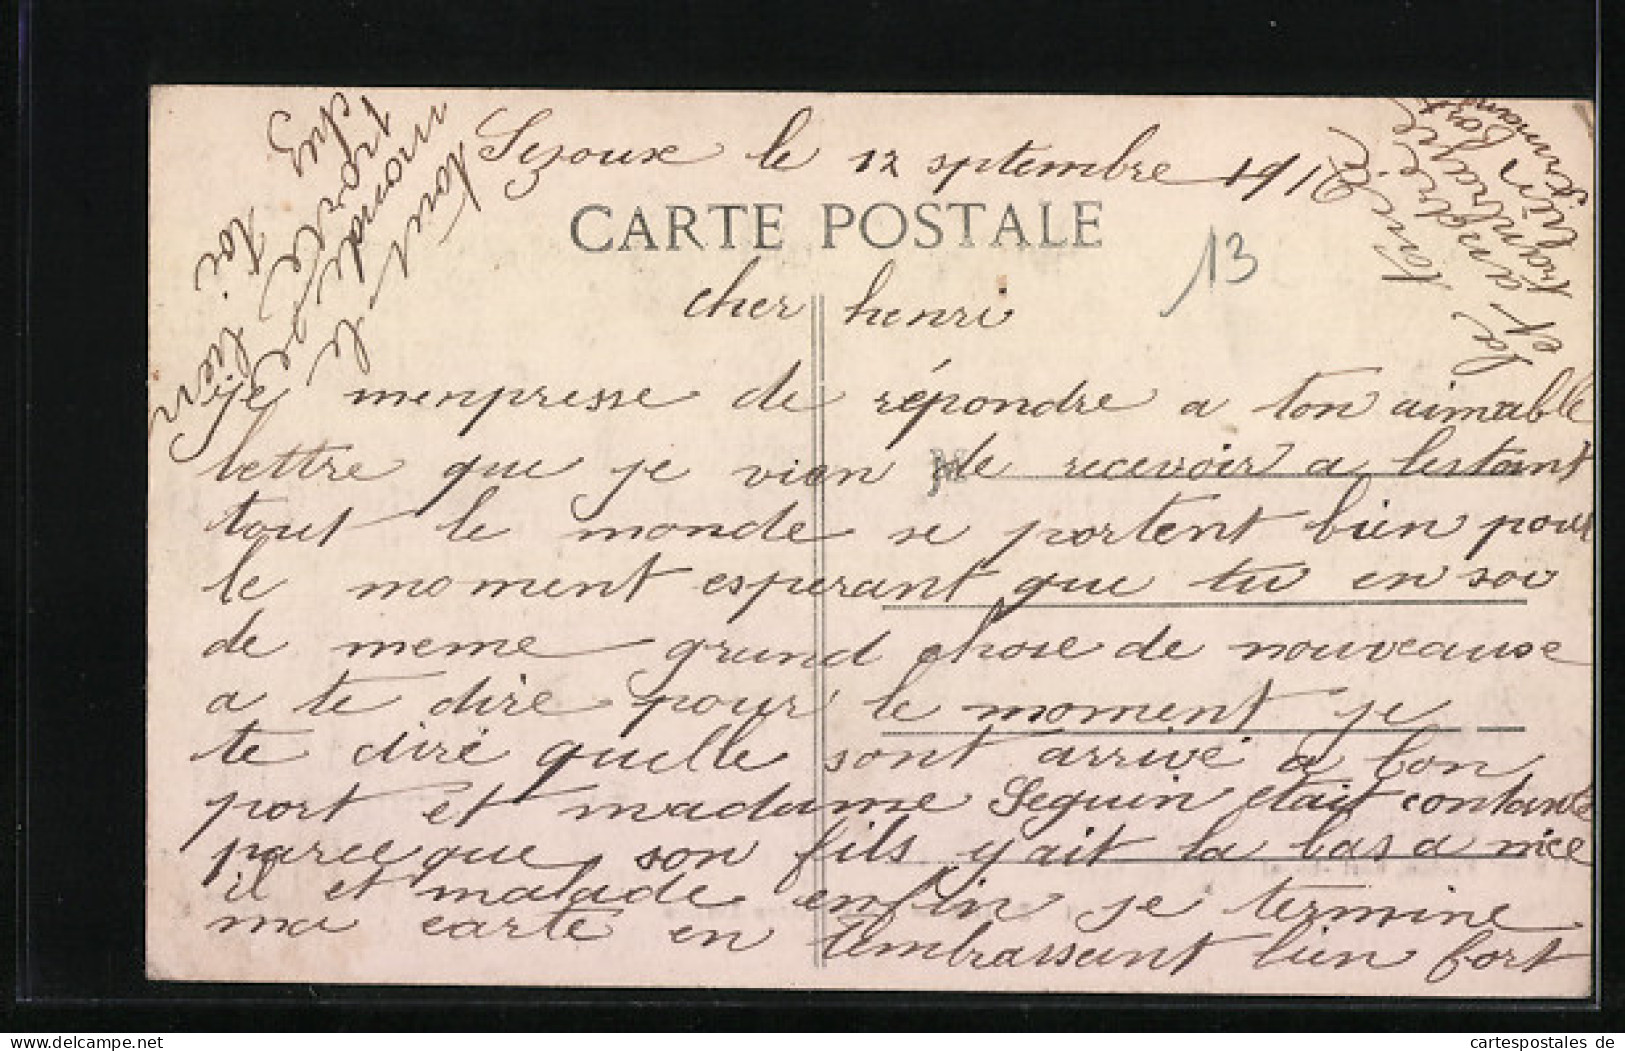 Lezoux le 12 septembre 191
CARTE POSTALE
13
cher henri
je menpresse de répondre a ton aimable
lettre que je vien de recevoir a lestant
tout le monde se portent bien pour
le moment esperant que tu en soi
de meme grand chose de nouveause
a te dire pour le moment je
te dire quelle sont arrivé a bon
port et madame Seguin etait contante
parce que son fils y ait la bas a nice
il et malade enfin je termine
ma carte en tembrassant bien fort
ton
et tranbraye
bien fort
tout le
monde
chez
toi bien
cartespostales de
cartespostales de